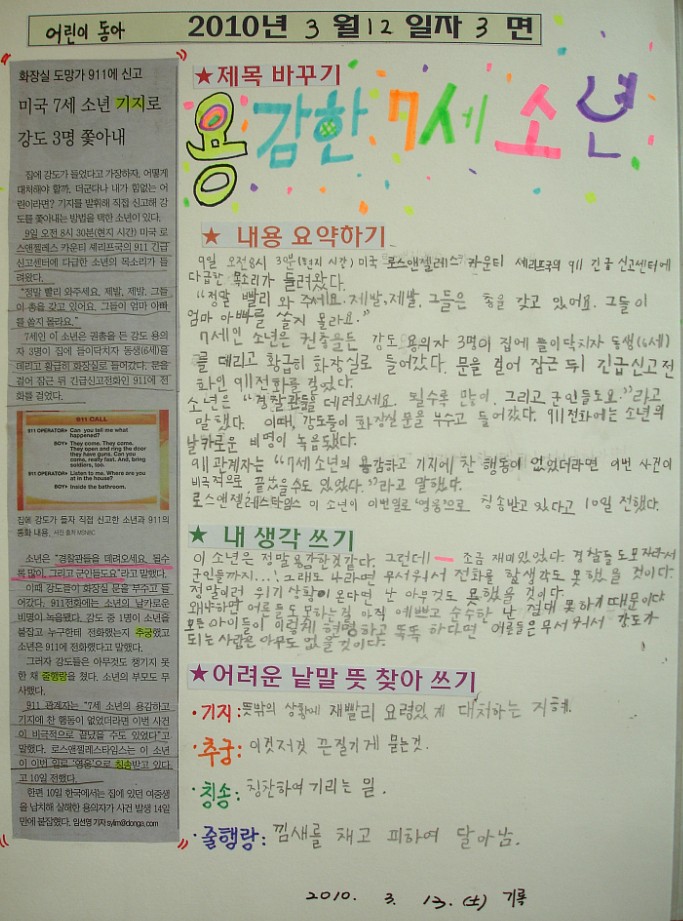 어린이 동아
2010년 3월 12일자 3면
화장실 도망가 911에 신고
미국 7세 소년 기지로
강도 3명 쫓아내
집에 강도가 들었다고 가정하자. 어떻게
대처해야 할까. 더군다나 내가 힘없는 어
린이라면? 기지를 발휘해 직접 신고해 강
도를 쫓아내는 방법을 택한 소년이 있다.
9일 오전 8시 30분(현지 시간) 미국 로
스앤젤레스 카운티 셰리프국의 911 긴급
신고센터에 다급한 소년의 목소리가 들
려왔다.
"정말 빨리 와주세요. 제발, 제발. 그들
이 총을 갖고 있어요. 그들이 엄마 아빠
를 쏠지 몰라요."
7세인 이 소년은 권총을 든 강도 용의
자 3명이 집에 들이닥치자 동생(6세)을
데리고 황급히 화장실로 들어갔다. 문을
걸어 잠근 뒤 긴급신고전화인 911에 전
화를 걸었다.
911 CALL
911 OPERATOR» Can you tell me what
happened?
BOY» They come. They come.
They open and ring the door
they have guns. Can you
come, really fast. And, bring
soldiers, too.
911 OPERATOR» Listen to me. Where are you
at in the house?
BOY» Inside the bathroom.
집에 강도가 들자 직접 신고한 소년과 911의
통화 내용. 사진 출처 MSNBC
소년은 "경찰관들을 데려오세요. 될수
록 많이. 그리고 군인들도요"라고 말했다.
이때 강도들이 화장실 문을 부수고 들
어갔다. 911전화에는 소년의 날카로운
비명이 녹음됐다. 강도 중 1명이 소년을
붙잡고 누구한테 전화했는지 추궁했고
소년은 911에 전화했다고 말했다.
그러자 강도들은 아무것도 챙기지 못
한 채 줄행랑을 쳤다. 소년의 부모도 무
사했다.
911 관계자는 "7세 소년의 용감하고
기지에 찬 행동이 없었더라면 이번 사건
이 비극적으로 끝났을 수도 있었다"고
말했다. 로스앤젤레스타임스는 이 소년
이 이번 일로 '영웅'으로 칭송받고 있다
고 10일 전했다.
한편 10일 한국에서는 집에 있던 여중생
을 납치해 살해한 용의자가 사건 발생 14일
만에 붙잡혔다. 임선영 기자 sylim@donga.com
★제목 바꾸기
용감한 7세 소년
★ 내용 요약하기
9일 오전8시 3분(현지 시간) 미국 로스앤젤레스 카운티 셰리프국의 911 긴급신고센터에
다급한 목소리가 들려왔다.
"정말 빨리 와 주세요. 제발, 제발, 그들은 총을 갖고 있어요. 그들이
엄마 아빠를 쏠지 몰라요."
7세인 소년은 권총을든 강도 용의자 3명이 집에 들이닥치자 동생(6세)
를 데리고 황급히 화장실로 들어갔다. 문을 걸어 잠근 뒤 긴급신고전
화인 911전화를 걸었다.
소년은 "경찰관들을 데려오세요. 될수록 많이. 그리고 군인들도요."라고
말했다. 이때, 강도들이 화장실문을 부수고 들어갔다. 911전화에는 소년의
날카로운 비명이 녹음됐다.
911관계자는 "7세소년의 용감하고 기지에 찬 행동이 없었더라면 이번 사건이
비극적으로 끝났을수도 있었다."라고 말했다.
로스앤젤레스타임스 이 소년이 이번일로 '영웅'으로 칭송받고 있다고 10일 전했다.
★ 내 생각 쓰기
이 소년은 정말용감한것같다. 그런데 조금 재미있었다. 경찰들도모자라서
군인들까지...! 그래도 나라면 무서워서 전화를 할생각도 못했을 것이다.
정말이런 위기상황이 온다면 난 아무것도 못했을 것이다.
왜냐하면 어른들도못하는걸 아직 예쁘고 순수한 난 절대 못하기 때문이다
모든 아이들이 이렇게 현명하고 똑똑하다면 어른들은무서워서 강도가
되는 사람은 아무도 없을 것이다.
★어려운 낱말 뜻 찾아 쓰기
·기지: 뜻밖의 상황에 재빨리 요령있게 대처하는 지혜.
·추궁: 이것저것 끈질기게 묻는것.
·칭송: 칭찬하여 기리는 일.
·줄행랑: 낌새를 채고 피하여 달아남.
2010. 3. 13. (土) 기록